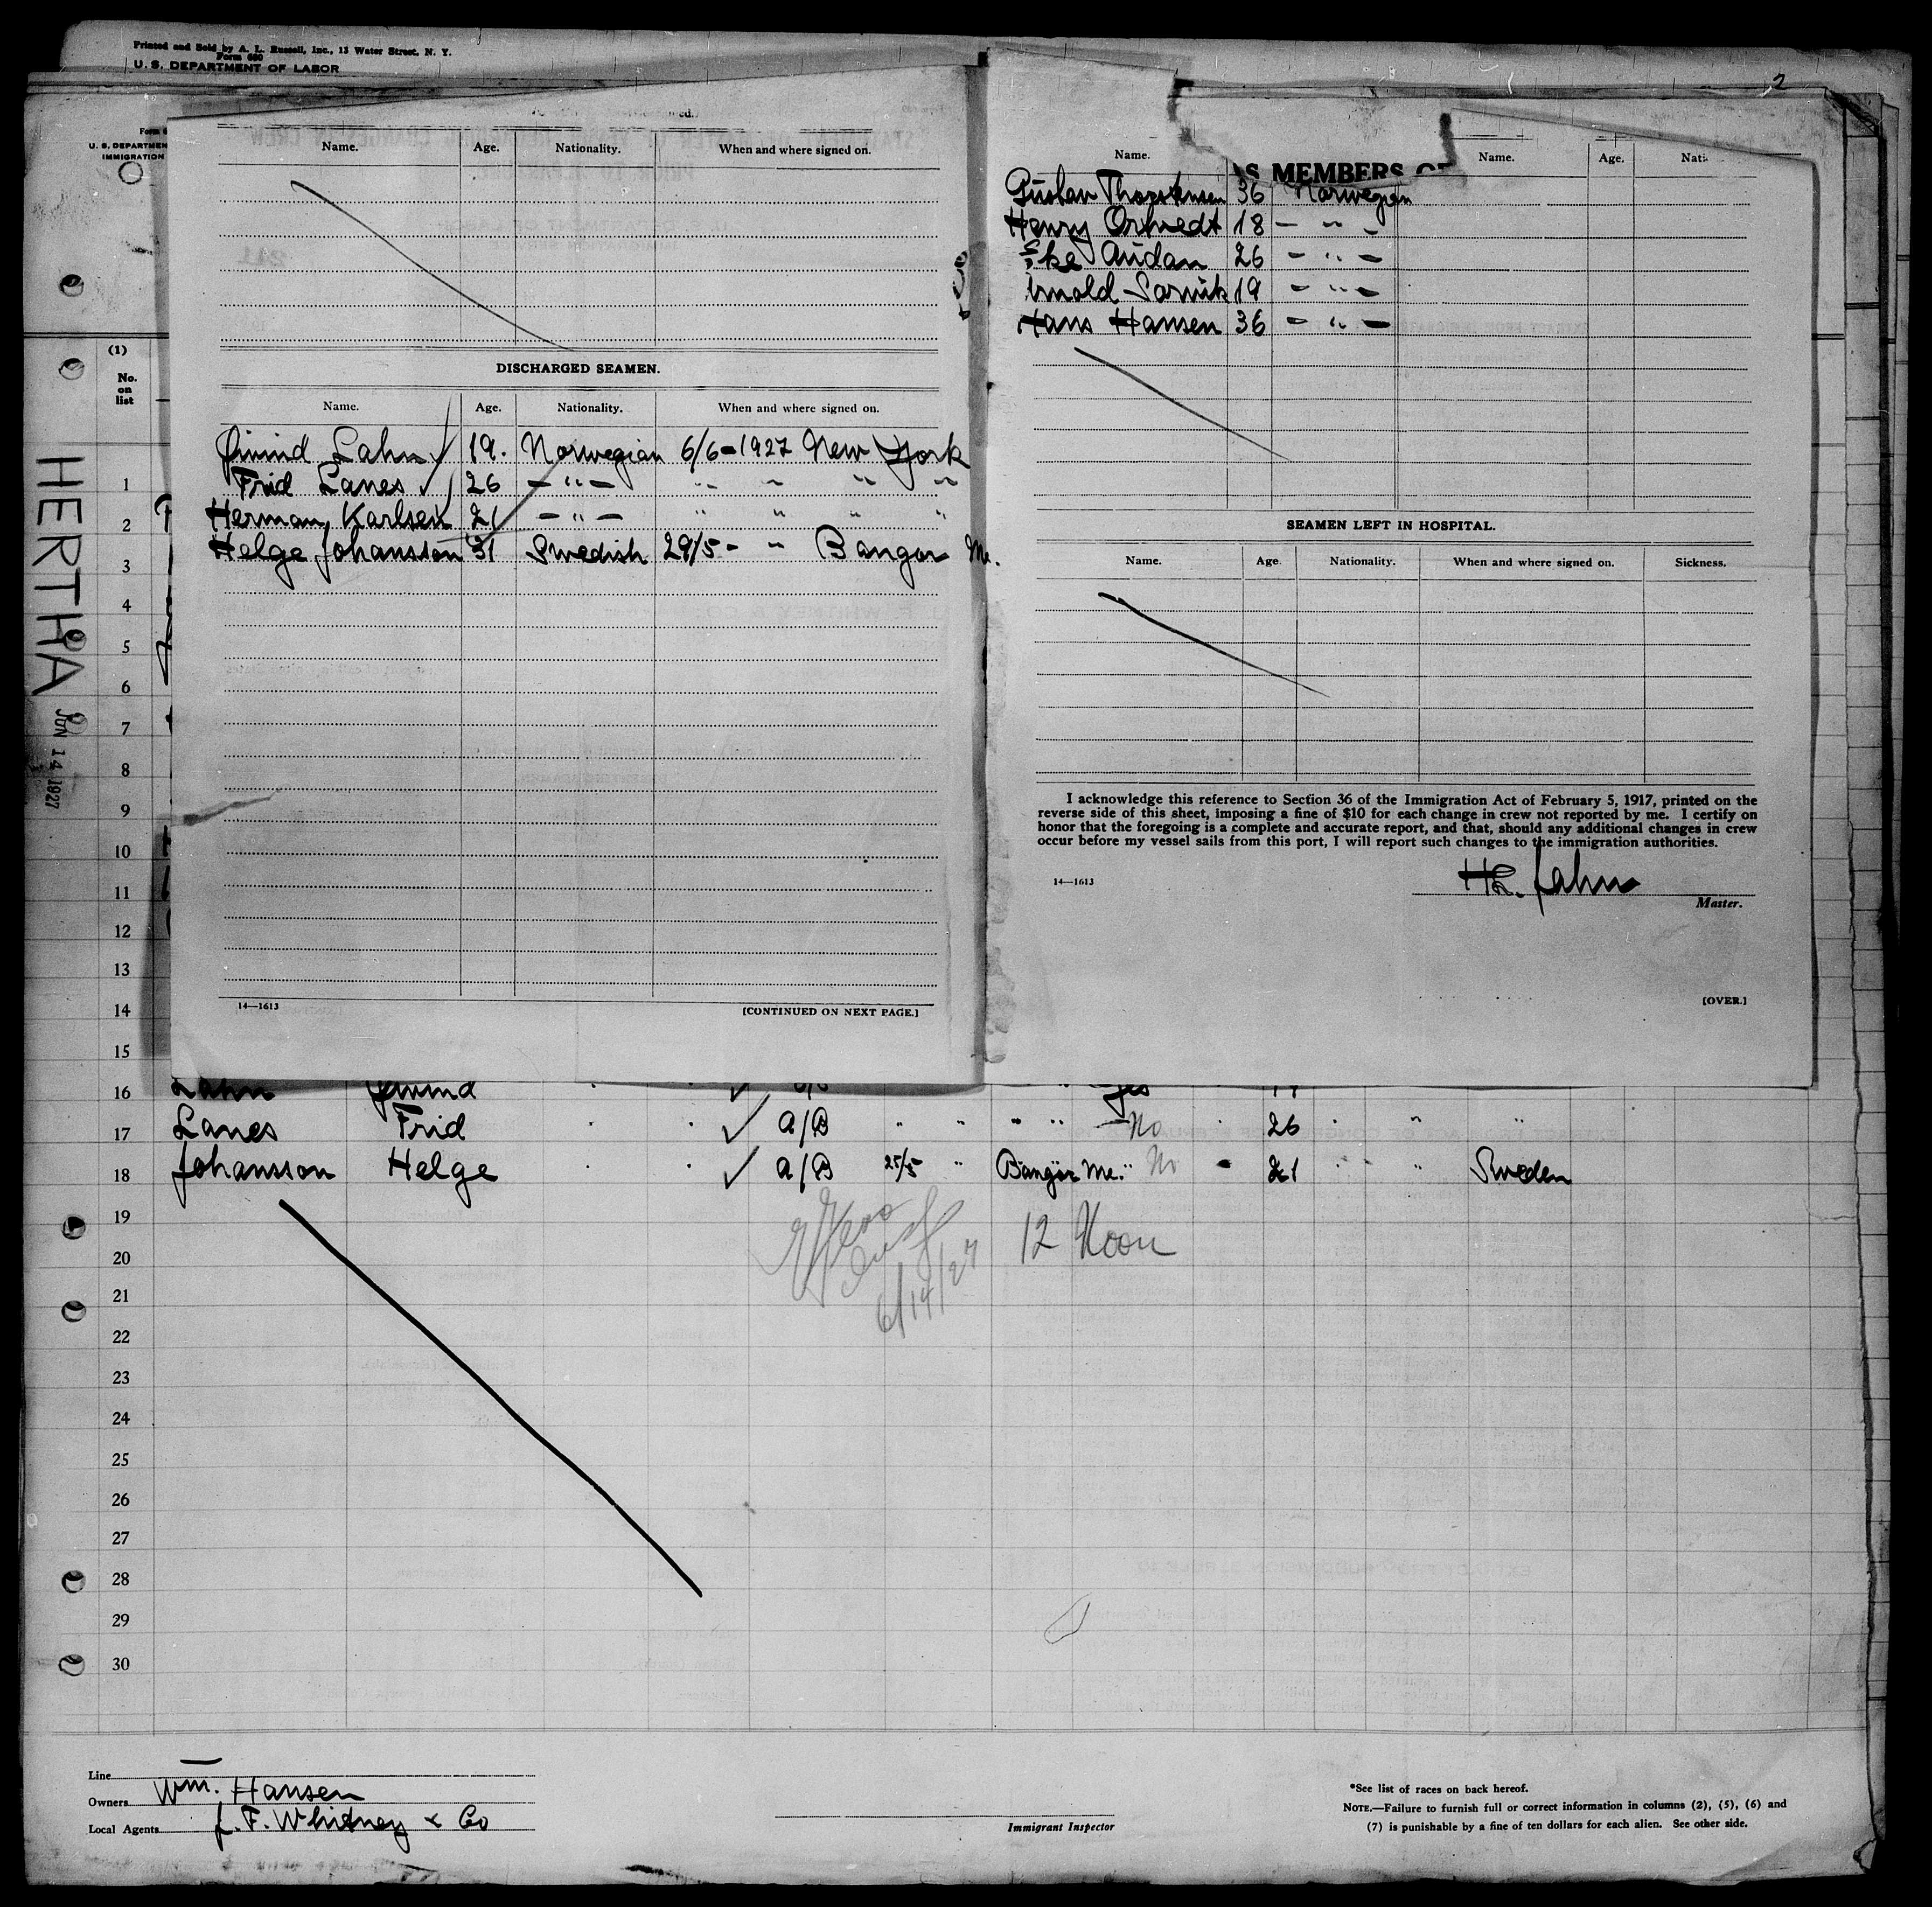 Printed and Sold by A. L. Russell, Inc., 13 Water Street, N. Y.
Form 680
U. S. DEPARTMENT OF LABOR
2
U. S. DEPARTMEN
IMMIGRATION
(1)
No.
on
list
HERTHA
JUN 14 1927
Name. Age. Nationality. When and where signed on.
DISCHARGED SEAMEN.
Name. Age. Nationality. When and where signed on.
Øivind Lahn 19. Norwegian 6/6-1927 New York
Frid Lanes 26 -"- " " " "
Herman Karlsen 21 -"- " " " "
Helge Johansson 31 Swedish 29/5- " Bangor Me.
14—1613 [CONTINUED ON NEXT PAGE.]
S MEMBERS O
Name. Name. Age. Nati
Gustav Thorstensen 36 Norwegian
Henry 18 - " -
Audan 26 - " -
19 - " -
Hans Hansen 36 - " -
SEAMEN LEFT IN HOSPITAL.
Name. Age. Nationality. When and where signed on. Sickness.
I acknowledge this reference to Section 36 of the Immigration Act of February 5, 1917, printed on the
reverse side of this sheet, imposing a fine of $10 for each change in crew not reported by me. I certify on
honor that the foregoing is a complete and accurate report, and that, should any additional changes in crew
occur before my vessel sails from this port, I will report such changes to the immigration authorities.
14—1613
Master.
[OVER.]
1
2
3
4
5
6
7
8
9
10
11
12
13
14
15
16 Lahn Øivind Yes 19
17 Lanes Frid ✓ A/B " " " " No 26 " "
18 Johansson Helge ✓ A/B 25/5 " Bangor Me. " No 21 " Sweden
19
12 Noon
20
6/14/27
21
22
23
24
25
26
27
28
29
30
Line
Owners Wm. Hansen
Local Agents J. F. Whitney & Co
Immigrant Inspector
*See list of races on back hereof.
NOTE.—Failure to furnish full or correct information in columns (2), (5), (6) and
(7) is punishable by a fine of ten dollars for each alien. See other side.